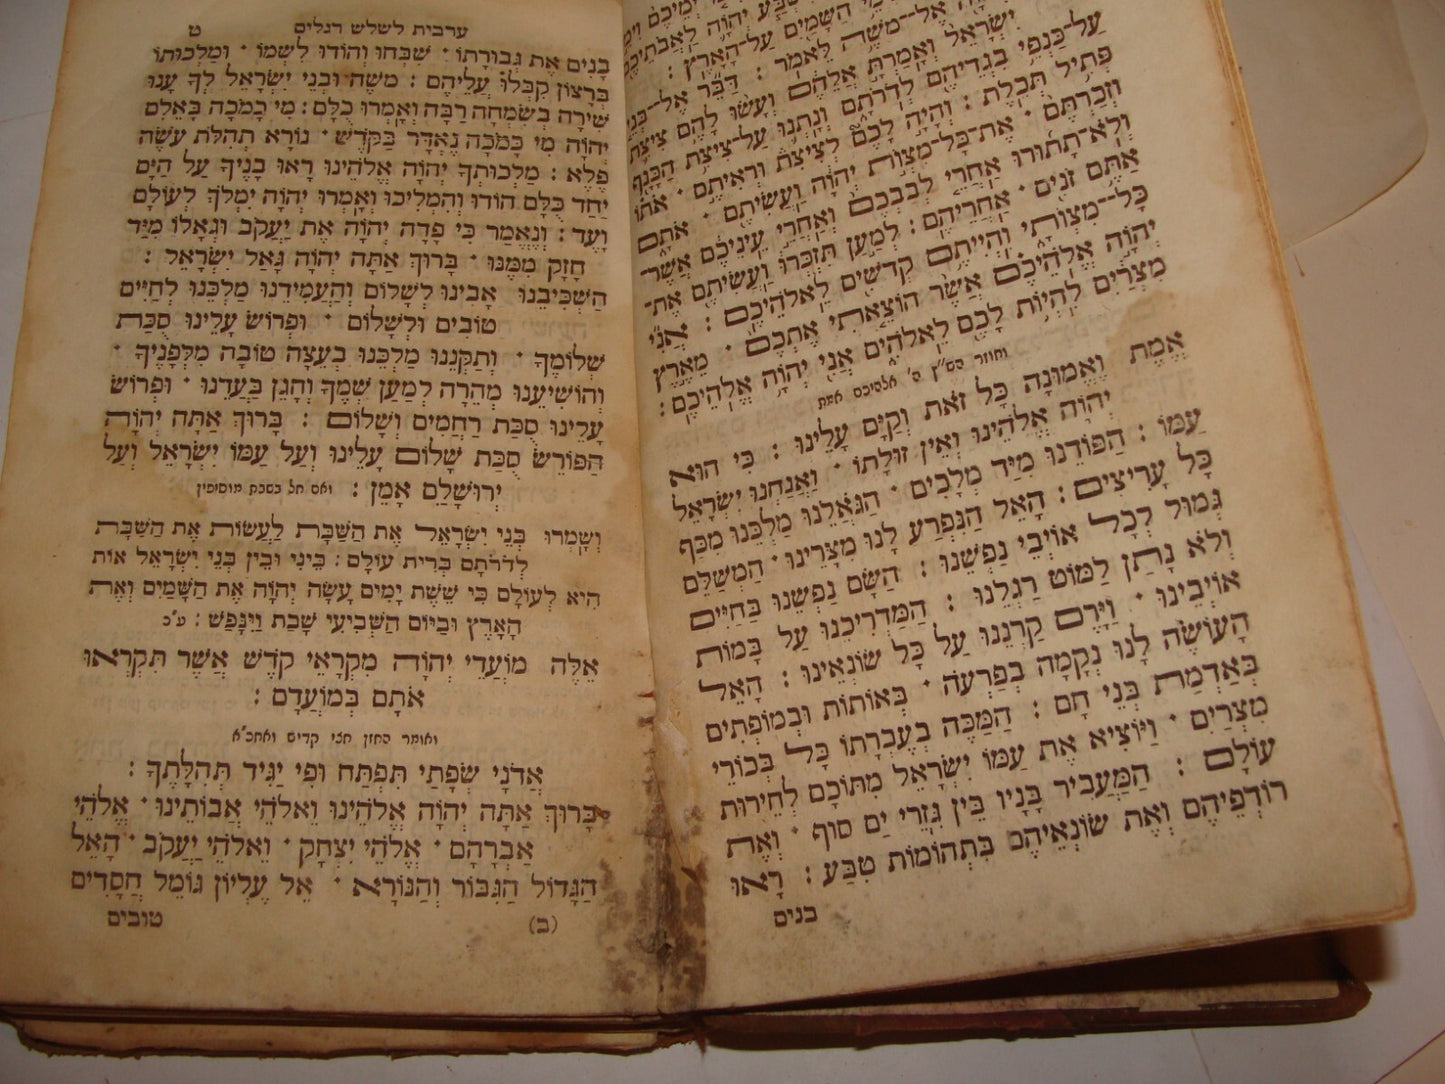 יְמֵיכֶם
יְהוָֹה לַאֲבֹתֵיכֶם
הַשָּׁמַיִם עַל־הָאָרֶץ :
אֶל־מֹשֶׁה לֵּאמֹר : דַּבֵּר אֶל־בְּנֵי
יִשְׂרָאֵל וְאָמַרְתָּ אֲלֵהֶם וְעָשׂוּ לָהֶם צִיצִת
עַל־כַּנְפֵי בִגְדֵיהֶם לְדֹרֹתָם וְנָתְנוּ עַל־צִיצִת הַכָּנָף
פְּתִיל תְּכֵלֶת : וְהָיָה לָכֶם לְצִיצִת וּרְאִיתֶם • אֹתוֹ
וּזְכַרְתֶּם • אֶת־כָּל־מִצְוֹת יְהוָֹה וַעֲשִׂיתֶם • אֹתָם
וְלֹא־תָתוּרוּ אַחֲרֵי לְבַבְכֶם וְאַחֲרֵי עֵינֵיכֶם אֲשֶׁר־
אַתֶּם זֹנִים • אַחֲרֵיהֶם : לְמַעַן תִּזְכְּרוּ וַעֲשִׂיתֶם אֶת־
כָּל־מִצְוֹתַי וִהְיִיתֶם קְדֹשִׁים לֵאלֹהֵיכֶם : אֲנִי
יְהוָֹה אֱלֹהֵיכֶם אֲשֶׁר הוֹצֵאתִי אֶתְכֶם • מֵאֶרֶץ
מִצְרַיִם לִהְיוֹת לָכֶם לֵאלֹהִים אֲנִי יְהוָֹה אֱלֹהֵיכֶם :
וחוזר הש״ץ ה׳ אלהיכם אמת
אֱמֶת וֶאֱמוּנָה כָּל זֹאת וְקַיָּם עָלֵינוּ : כִּי הוּא
יְהוָֹה אֱלֹהֵינוּ וְאֵין זוּלָתוֹ • וַאֲנַחְנוּ יִשְׂרָאֵל
עַמּוֹ : הַפּוֹדֵנוּ מִיַּד מְלָכִים • הַגֹּאֲלֵנוּ מַלְכֵּנוּ מִכַּף
כָּל עָרִיצִים : הָאֵל הַנִּפְרַע לָנוּ מִצָּרֵינוּ • הַמְשַׁלֵּם
גְּמוּל לְכָל אוֹיְבֵי נַפְשֵׁנוּ : הַשָּׂם נַפְשֵׁנוּ בַּחַיִּים
וְלֹא נָתַן לַמּוֹט רַגְלֵנוּ : הַמַּדְרִיכֵנוּ עַל בָּמוֹת
אוֹיְבֵינוּ • וַיָּרֶם קַרְנֵנוּ עַל כָּל שׂוֹנְאֵינוּ : הָאֵל
הָעוֹשֶׂה לָּנוּ נְקָמָה בְּפַרְעֹה • בְּאוֹתוֹת וּבְמוֹפְתִים
בְּאַדְמַת בְּנֵי חָם : הַמַּכֶּה בְעֶבְרָתוֹ כָּל בְּכוֹרֵי
מִצְרַיִם • וַיּוֹצִיא אֶת עַמּוֹ יִשְׂרָאֵל מִתּוֹכָם לְחֵירוּת
עוֹלָם : הַמַּעֲבִיר בָּנָיו בֵּין גִּזְרֵי יַם סוּף • וְאֶת
רוֹדְפֵיהֶם וְאֶת שׂוֹנְאֵיהֶם בִּתְהוֹמוֹת טִבַּע : רָאוּ
בנים
ערבית לשלש רגלים ט
בָנִים אֶת גְּבוּרָתוֹ • שִׁבְּחוּ וְהוֹדוּ לִשְׁמוֹ • וּמַלְכוּתוֹ
בְּרָצוֹן קִבְּלוּ עֲלֵיהֶם : משֶׁה וּבְנֵי יִשְׂרָאֵל לְךָ עָנוּ
שִׁירָה בְּשִׂמְחָה רַבָּה וְאָמְרוּ כֻלָּם : מִי כָמֹכָה בָּאֵלִם
יְהוָֹה מִי כָּמֹכָה נֶאְדָּר בַּקֹּדֶשׁ • נוֹרָא תְהִלֹּת עֹשֵׂה
פֶלֶא : מַלְכוּתְךָ יְהוָֹה אֱלֹהֵינוּ רָאוּ בָנֶיךָ עַל הַיָּם
יַחַד כֻּלָּם הוֹדוּ וְהִמְלִיכוּ וְאָמְרוּ יְהוָֹה יִמְלֹךְ לְעוֹלָם
וָעֶד : וְנֶאֱמַר כִּי פָדָה יְהוָֹה אֶת יַעֲקֹב וּגְאָלוֹ מִיַּד
חָזָק מִמֶּנּוּ • בָּרוּךְ אַתָּה יְהוָֹה גָּאַל יִשְׂרָאֵל :
הַשְׁכִּיבֵנוּ אָבִינוּ לְשָׁלוֹם וְהַעֲמִידֵנוּ מַלְכֵּנוּ לְחַיִּים
טוֹבִים וּלְשָׁלוֹם • וּפְרוֹשׂ עָלֵינוּ סֻכַּת
שְׁלוֹמֶךָ • וְתַקְּנֵנוּ מַלְכֵּנוּ בְּעֵצָה טוֹבָה מִלְּפָנֶיךָ •
וְהוֹשִׁיעֵנוּ מְהֵרָה לְמַעַן שְׁמֶךָ וְהָגֵן בַּעֲדֵנוּ • וּפְרוֹשׂ
עָלֵינוּ סֻכַּת רַחֲמִים וְשָׁלוֹם : בָּרוּךְ אַתָּה יְהוָֹה
הַפּוֹרֵשׂ סֻכַּת שָׁלוֹם עָלֵינוּ וְעַל עַמּוֹ יִשְׂרָאֵל וְעַל
יְרוּשָׁלַם אָמֵן : ואם חל בשבת מוסיפין
וְשָׁמְרוּ בְּנֵי יִשְׂרָאֵל אֶת הַשַּׁבָּת לַעֲשׂוֹת אֶת הַשַּׁבָּת
לְדֹרֹתָם בְּרִית עוֹלָם : בֵּינִי וּבֵין בְּנֵי יִשְׂרָאֵל אוֹת
הִיא לְעוֹלָם כִּי שֵׁשֶׁת יָמִים עָשָׂה יְהוָֹה אֶת הַשָּׁמַיִם וְאֶת
הָאָרֶץ וּבַיּוֹם הַשְּׁבִיעִי שָׁבַת וַיִּנָּפַשׁ : ע״כ
אֵלֶּה מוֹעֲדֵי יְהוָֹה מִקְרָאֵי קֹדֶשׁ אֲשֶׁר תִּקְרְאוּ
אֹתָם בְּמוֹעֲדָם :
ואומר החזן חצי קדיש ואח״כ
אֲדֹנָי שְׂפָתַי תִּפְתָּח וּפִי יַגִּיד תְּהִלָּתֶךָ :
בָּרוּךְ אַתָּה יְהוָֹה אֱלֹהֵינוּ וֵאלֹהֵי אֲבוֹתֵינוּ • אֱלֹהֵי
אַבְרָהָם • אֱלֹהֵי יִצְחָק • וֵאלֹהֵי יַעֲקֹב • הָאֵל
הַגָּדוֹל הַגִּבּוֹר וְהַנּוֹרָא • אֵל עֶלְיוֹן גּוֹמֵל חֲסָדִים
(ב) טובים